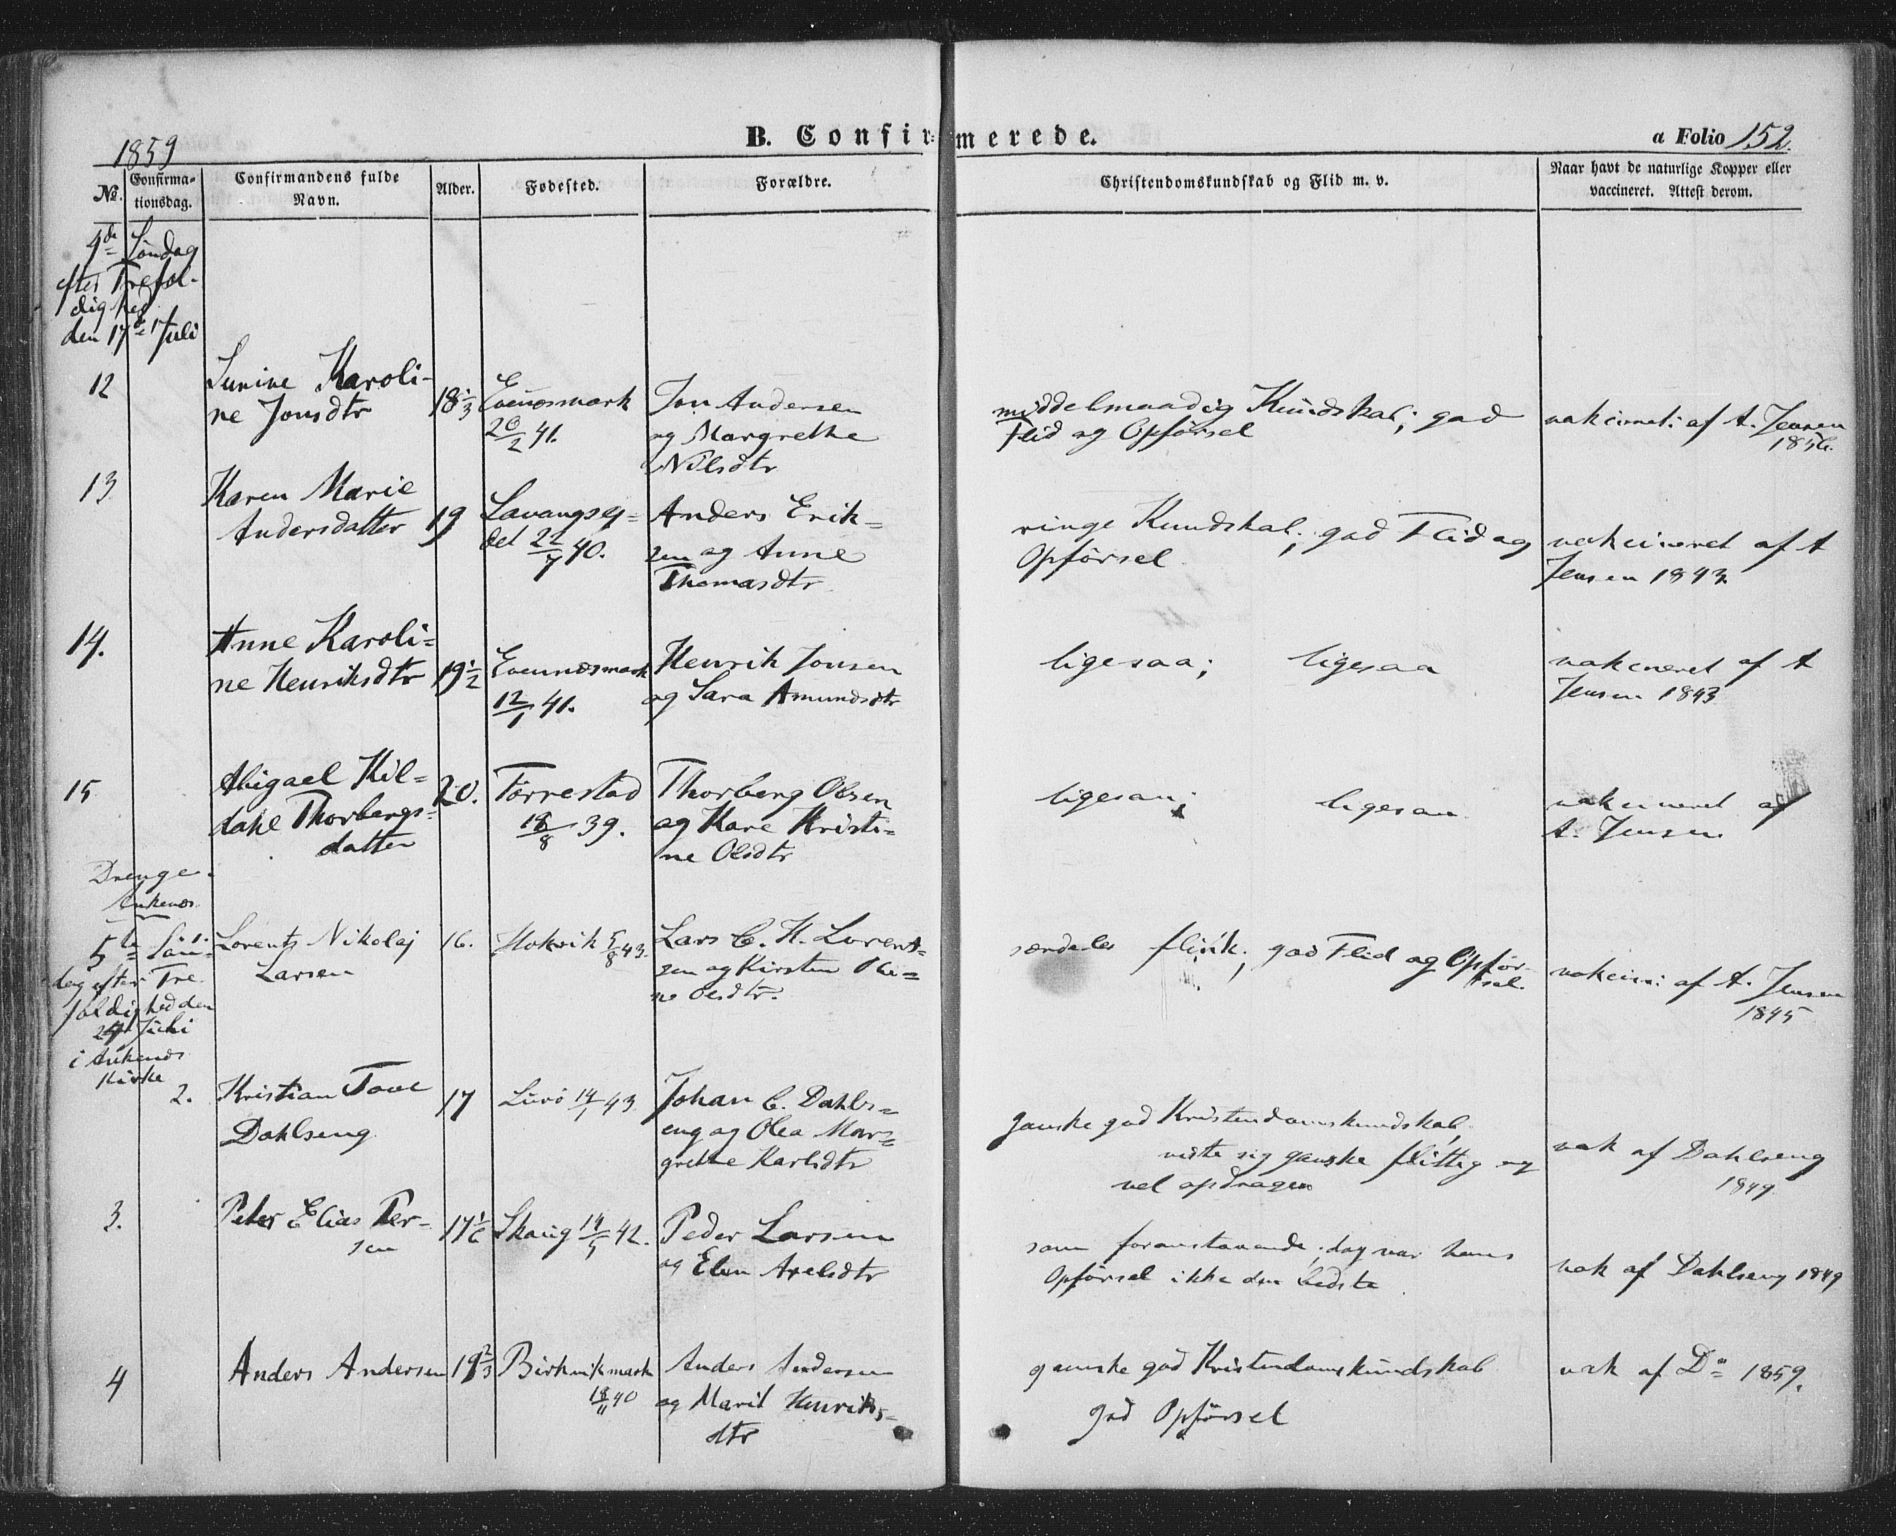 1859
B. Confirmerede.
a Folio 152.
No. Confirmationsdag. Confirmandens fulde Navn. Alder. Fødested. Forældre. Christendomskundskab og Flid m. v. Naar havt de naturlige Kopper eller vaccineret. Attest derom.
4de Søndag
efter Trefol-
dighed
den 17de Juli
12 Karoli-
ne Jonsdtr 18 1/3 Evenæsmark
20/2 41. Jon Andersen
og Margrethe
Nilsdtr middelmaadig Kundskab; god
Flid og Opførsel vakcinet: af A. Jensen
1856.
13 Karen Marie
Andersdatter 19 Lavangsej-
det 22/7 40. Anders Erik-
sen og Anne
Thomasdtr ringe Kundskab; god Flid og
Opførsel vakcineret af A
Jensen 1843
14. Anne Karoli-
ne Henriksdtr 19 1/2 Evenæsmark
12/1 41. Henrik Jonsen
og Sara Amundsdtr ligesaa; ligesaa vakcineret af A
Jensen 1843
15 Abigael Hil-
dahl Thorbergs-
datter 20. Tørrestad
18/8 39. Thorberg Olsen
og Kare Kristi-
ne Olsdtr ligesaa; ligesaa vakcineret af
A. Jensen
Drenge.
Ankenæs
5te Søn-
dag efter Tre
foldighed den
24de Juli
i Ankenæs
Kirke
1. Lorents Nikolaj
Larsen 16. Hokvik 5/8 43. Lars C. H. Lorent-
sen og Kirsten Oli-
ne Olsdtr. særdeles flink; god Flid og Opfør-
sel. vakcin: af A. Jensen
1845
2. Kristian
Dahlseng 17 Lurø 14/1 43 Johan C. Dahls-
eng og Olea Mar-
grethe Karlsdtr ganske god Kristendomskundskab,
viste sig ganske flittig og
vel opdragen vak af Dahlseng
1849
3. Peter Elias Per-
sen 17 1/6 Skaug 14/5 42. Peder Larsen
og Elen Axelsdtr som foranstaaende; dog var hans
Opførsel ikke den bedste vak af Dahlseng 1849
4 Anders Andersen 19 2/3 Birkvikmark
18/11 40 Anders Andersen
og Marit Henriks-
dtr ganske god Kristendomskundskab
god Opførsel vak af Do 1859.